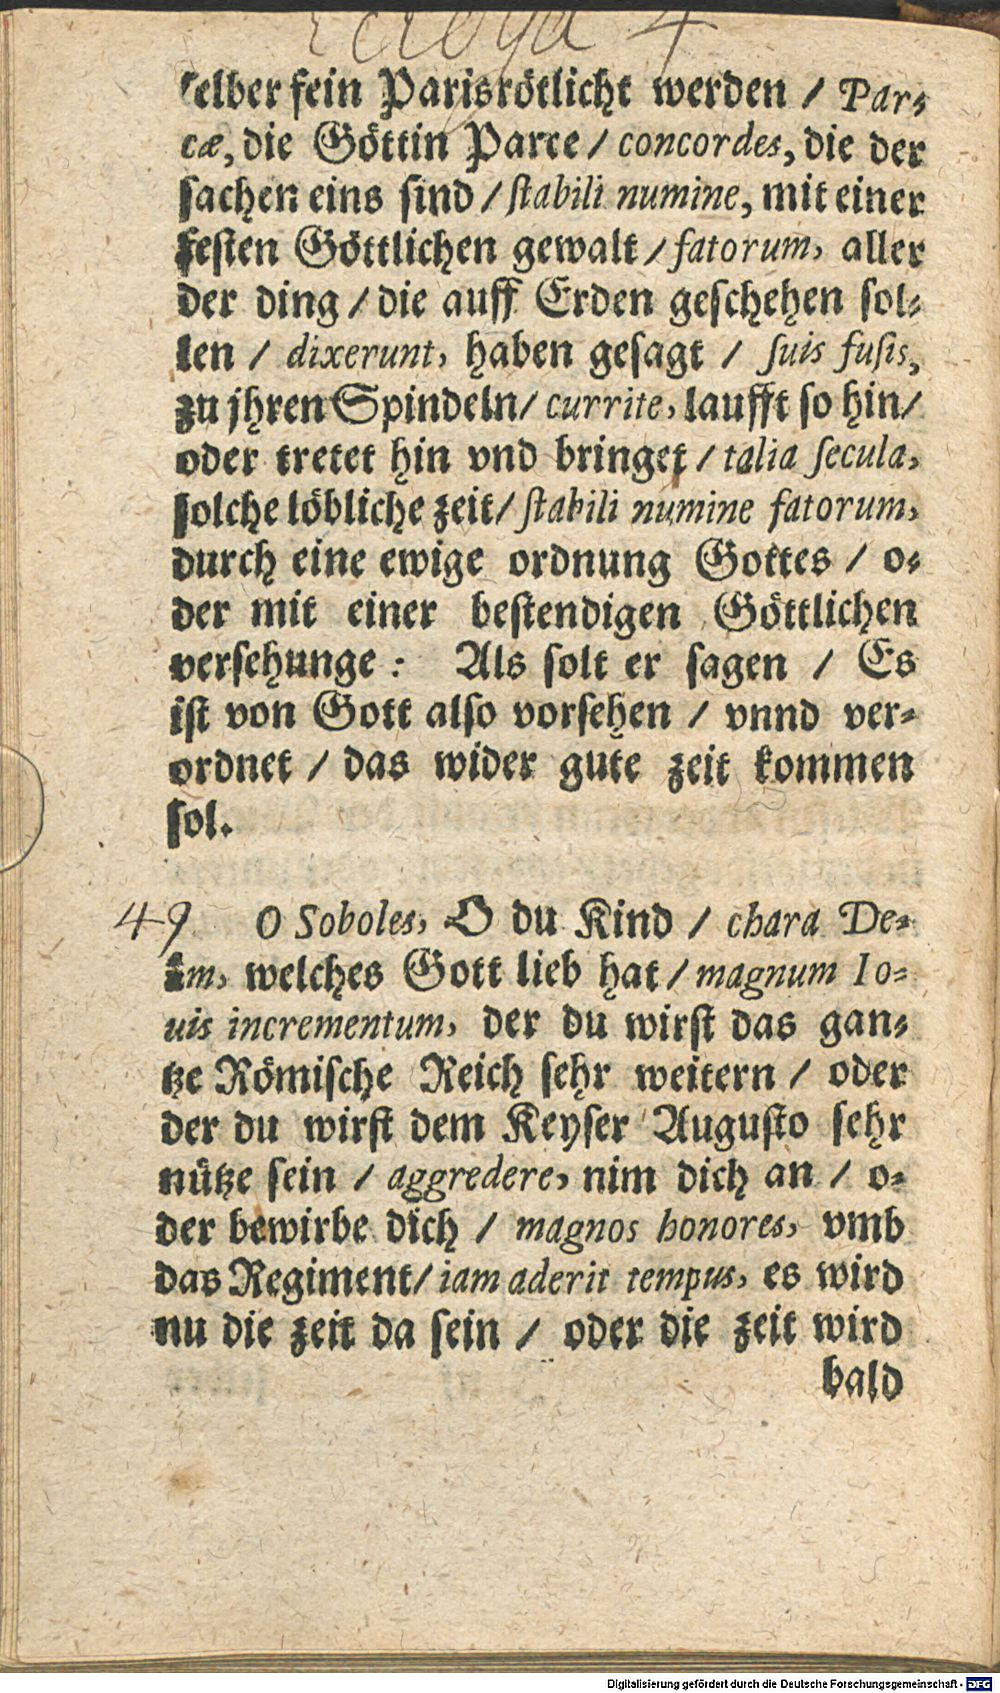 Ecloga 4
selber fein Parisrötlicht werden / Par-
cæ, die Göttin Parce / concordes, die der
sachen eins sind / stabili numine, mit einer
festen Göttlichen gewalt / fatorum, aller
der ding / die auff Erden geschehen sol-
len / dixerunt, haben gesagt / suis fusis,
zu jhren Spindeln / currite, laufft so hin /
oder tretet hin vnd bringet / talia secula,
solche löbliche zeit / stabili numine fatorum,
durch eine ewige ordnung Gottes / o-
der mit einer bestendigen Göttlichen
versehunge : Als solt er sagen / Es
ist von Gott also vorsehen / vnnd ver-
ordnet / das wider gute zeit kommen
sol.
49 O Soboles, O du Kind / chara De-
ûm, welches Gott lieb hat / magnum Io-
uis incrementum, der du wirst das gan-
tze Römische Reich sehr weitern / oder
der du wirst dem Keyser Augusto sehr
nütze sein / aggredere, nim dich an / o-
der bewirbe dich / magnos honores, vmb
das Regiment / iam aderit tempus, es wird
nu die zeit da sein / oder die zeit wird
bald
Digitalisierung gefördert durch die Deutsche Forschungsgemeinschaft - DFG